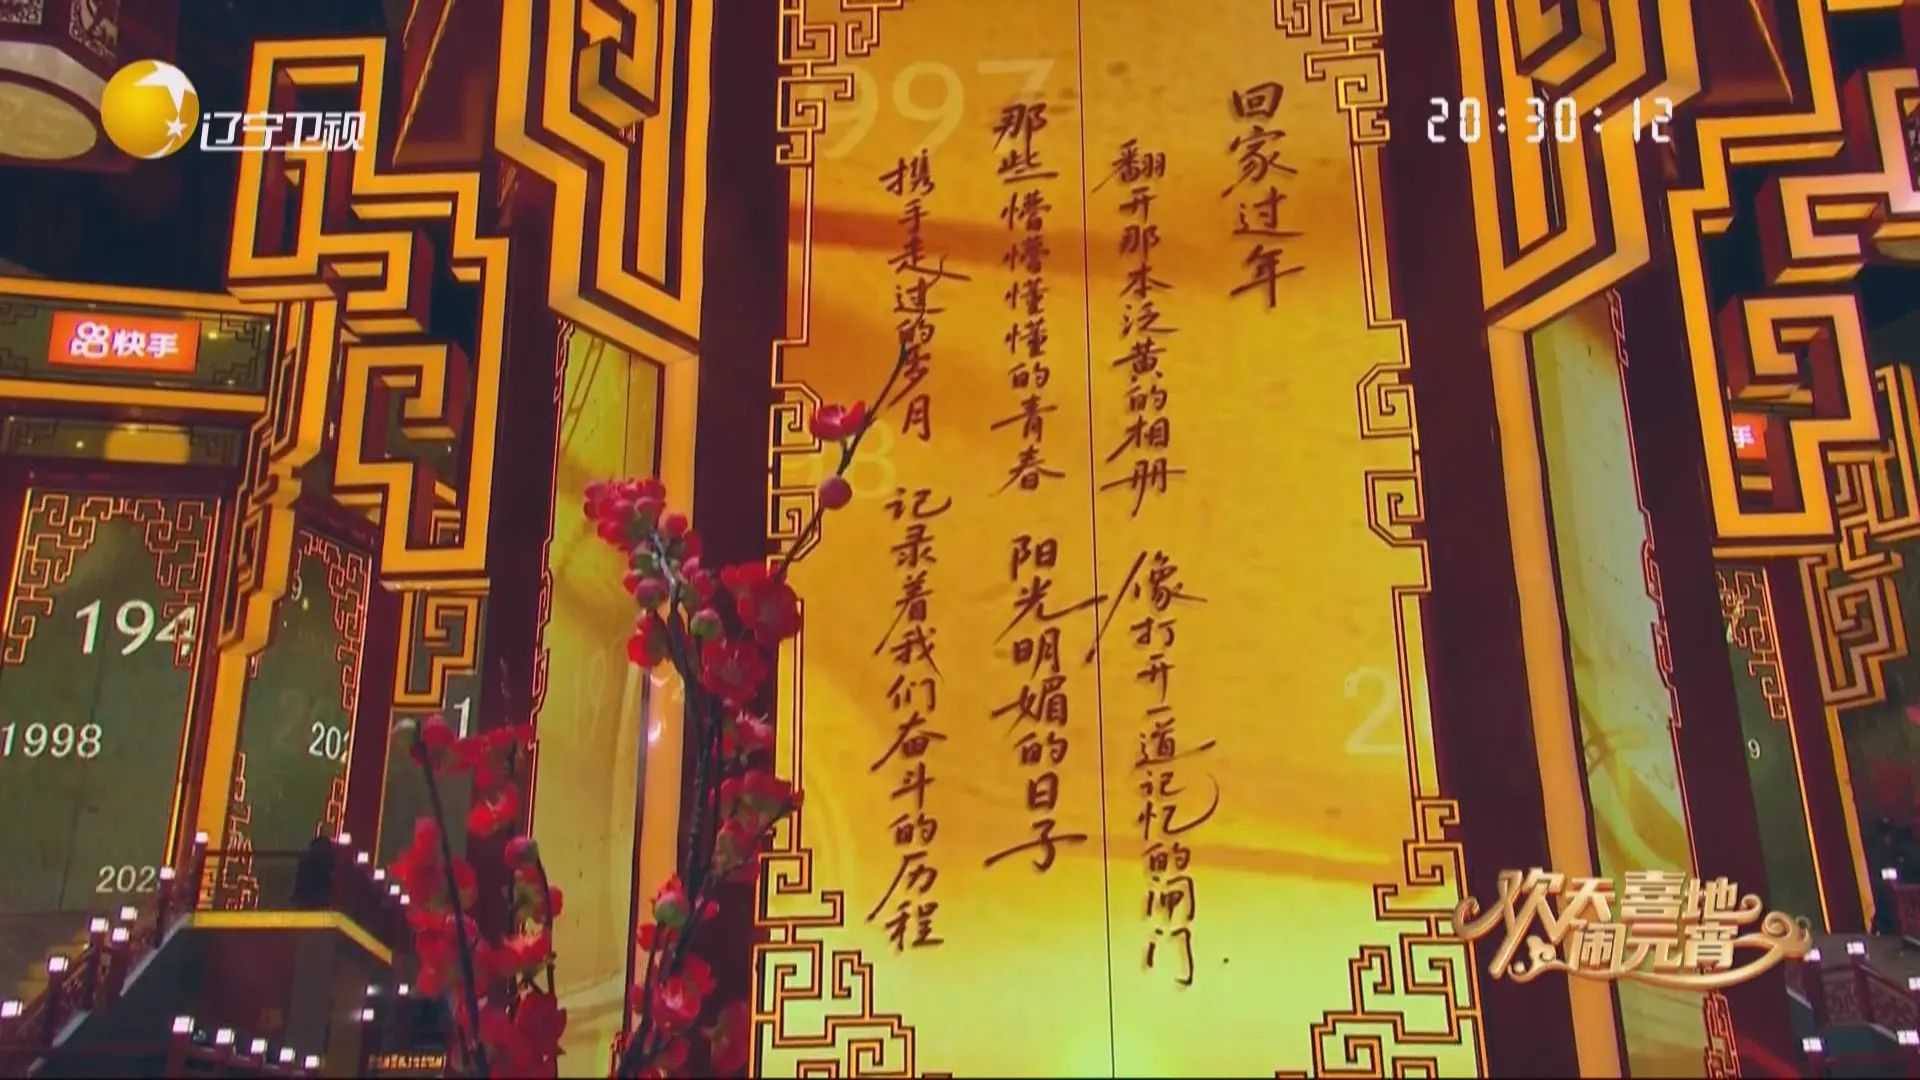 辽宁卫视
20:30:12
快手
997
回家过年
翻开那本泛黄的相册 像打开一道记忆的闸门
那些懵懵懂懂的青春 阳光明媚的日子
携手走过的岁月 记录着我们奋斗的历程
194
1998
202
202
手
欢天喜地
闹元宵